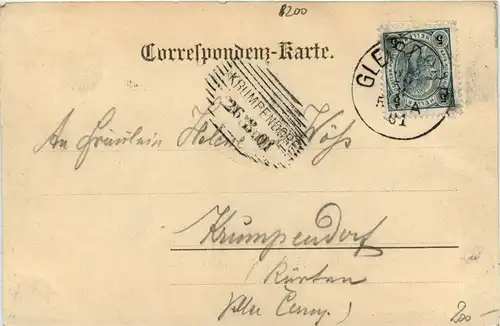 8200
Correspondenz-Karte.
KRUMPENDORF
26 8 01
GLE
5 5
An Fräulein Helene
Krumpendorf
Kärnten
200-